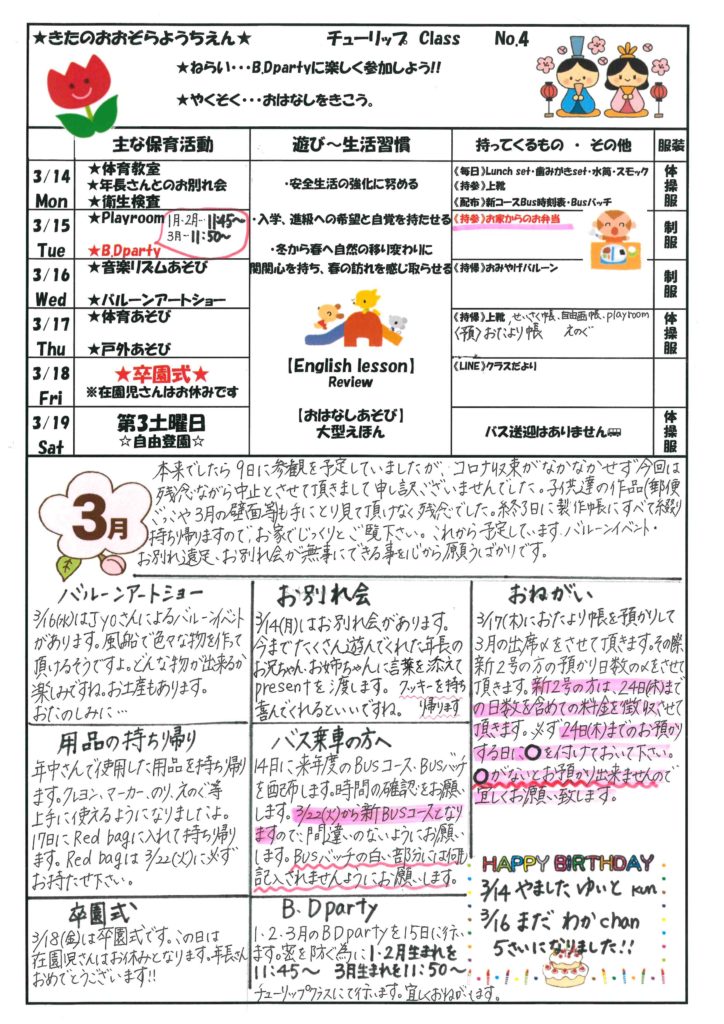 ★きたのおおぞらようちえん★ チューリップ Class No.4
★ねらい・・・B.Dpartyに楽しく参加しよう!!
★やくそく・・・おはなしをきこう。
主な保育活動 遊び～生活習慣 持ってくるもの ・ その他 服装
3/14 Mon
★体育教室
★年長さんとのお別れ会
★衛生検査
《毎日》Lunch set・歯みがきset・水筒・スモック
《持参》上靴
《配布》新コースBus時刻表・Busバッチ
体操服
3/15 Tue
★Playroom
★B.Dparty
1月・2月…11:45～
3月…11:50～
《持参》お家からのお弁当
制服
3/16 Wed
★音楽リズムあそび
★バルーンアートショー
《持帰》おみやげバルーン
制服
3/17 Thu
★体育あそび
★戸外あそび
《持帰》上靴 せいさく帳、自由画帳、playroom
〈預〉おたより帳 えのぐ
体操服
3/18 Fri
★卒園式★
※在園児さんはお休みです
《LINE》クラスだより
3/19 Sat
第3土曜日
☆自由登園☆
バス送迎はありません
体操服
・安全生活の強化に努める
・入学、進級への希望と自覚を持たせる
・冬から春へ自然の移り変わりに
関関心を持ち、春の訪れを感じ取らせる
【English lesson】
Review
【おはなしあそび】
大型えほん
3月
本来でしたら9日に参観を予定していましたが、コロナ収束がなかなかせず今回は
残念ながら中止とさせて頂きまして申し訳ございませんでした。子供達の作品(郵便
ごっこや3月の壁面等)も手にとり見て頂けなく残念でした。終了日に製作帳にすべて綴り
持ち帰りますので、お家でじっくりとご覧下さい。これから予定しています バルーンイベント・
お別れ遠足、お別れ会が無事にできる事を心から願うばかりです。
バルーンアートショー
3/16(水)はJyoさんによるバルーンイベント
があります。風船で色々な物を作って
頂けるそうですよ。どんな物が出来るか
楽しみですね。お土産もあります。
おたのしみに…
お別れ会
3/14(月)はお別れ会があります。
今までたくさん遊んでくれた年長の
お兄ちゃん・お姉ちゃんに言葉を添えて
presentを渡します。クッキーを持ち
喜んでくれるといいですね。帰ります
おねがい
3/17(木)におたより帳を預かりして
3月の出席〆をさせて頂きます。その際
新2号の方の預かり日数の〆をさせて
頂きます。新2号の方は、24日(木)まで
の日数を含めての料金を徴収させて
頂きます。必ず24日(木)までのお預かり
する日に、○を付けておいて下さい。
○がないとお預かり出来ませんので
宜しくお願い致します。
用品の持ち帰り
年中さんで使用した用品を持ち帰り
ます。クレヨン、マーカー、のり、えのぐ等
上手に使えるようになりましたよ。
17日にRed bagに入れて持ち帰り
ます。Red bagは3/22(火)に必ず
お持たせ下さい。
バス乗車の方へ
14日に来年度のBUSコース、BUSバッチ
を配布します。時間の確認をお願い
します。3/22(火)から新BUSコースとなり
ますので、間違いのないようにお願い
します。BUSバッチの白い部分には何も
記入されませんようにお願いします。
卒園式
3/18(金)は卒園式です。この日は
在園児さんはお休みとなります。年長さん
おめでとうございます!!
B.Dparty
1・2・3月のBDpartyを15日に行い
ます。密を防ぐ為に1・2月生まれを
11:45～ 3月生まれを11:50～
チューリップクラスにて行います。宜しくおねがいします。
HAPPY BIRTHDAY
3/14 やました ゆいと kun
3/16 まだ わか chan
5さいになりました!!